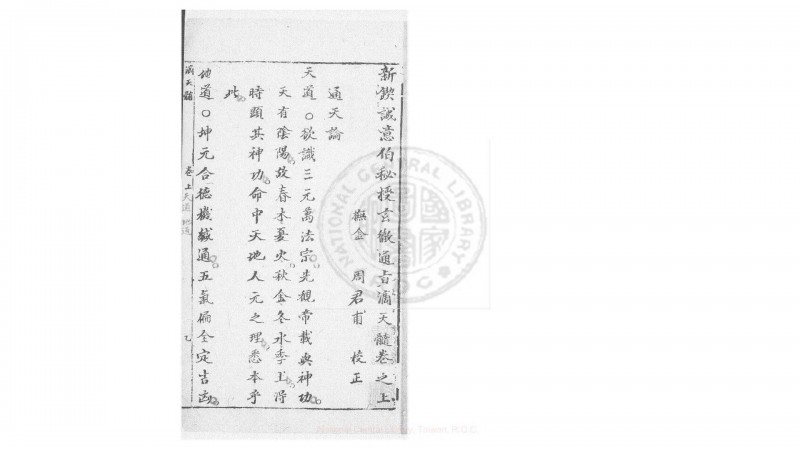 新鍥誠意伯秘授玄徹通旨滴天髓卷之上
撫金 周君甫 校正
通天論
天道○欲識三元萬法宗先觀帝載與神功
天有陰陽故春木夏火秋金冬水季土得
時顕其神功命中天地人元之理悉本乎
此
地道○坤元合德機緘通五氣偏全定吉凶
滴天髓 卷上 天道 地道 乙
NATIONAL CENTRAL LIBRARY
R.O.C.
國家圖